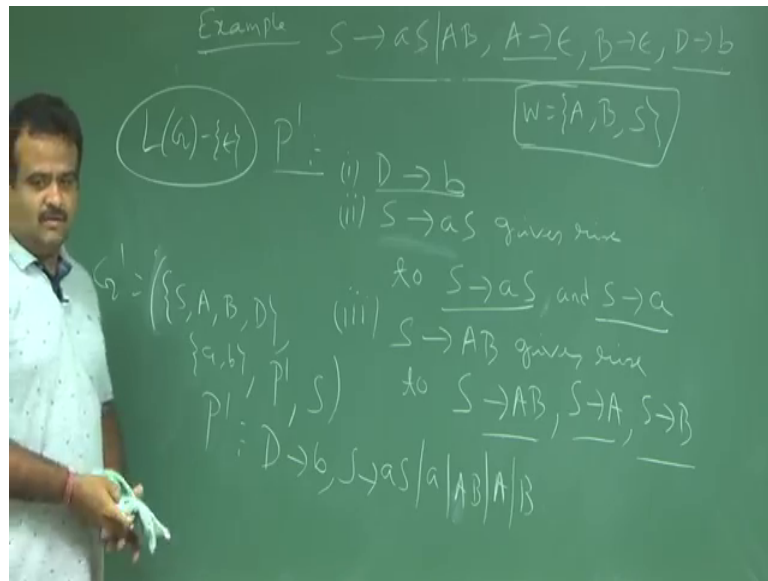 Example S → aS|AB, A → ϵ, B → ϵ, D → b
W = {A, B, S}
L(G) - {ϵ} P' :
(i) D → b
(ii) S → aS gives rise
to S → aS, and S → a
(iii) S → AB gives rise
to S → AB, S → A, S → B
G' = ({S, A, B, D},
{a, b}, P', S)
P' : D → b, S → aS|a|AB|A|B